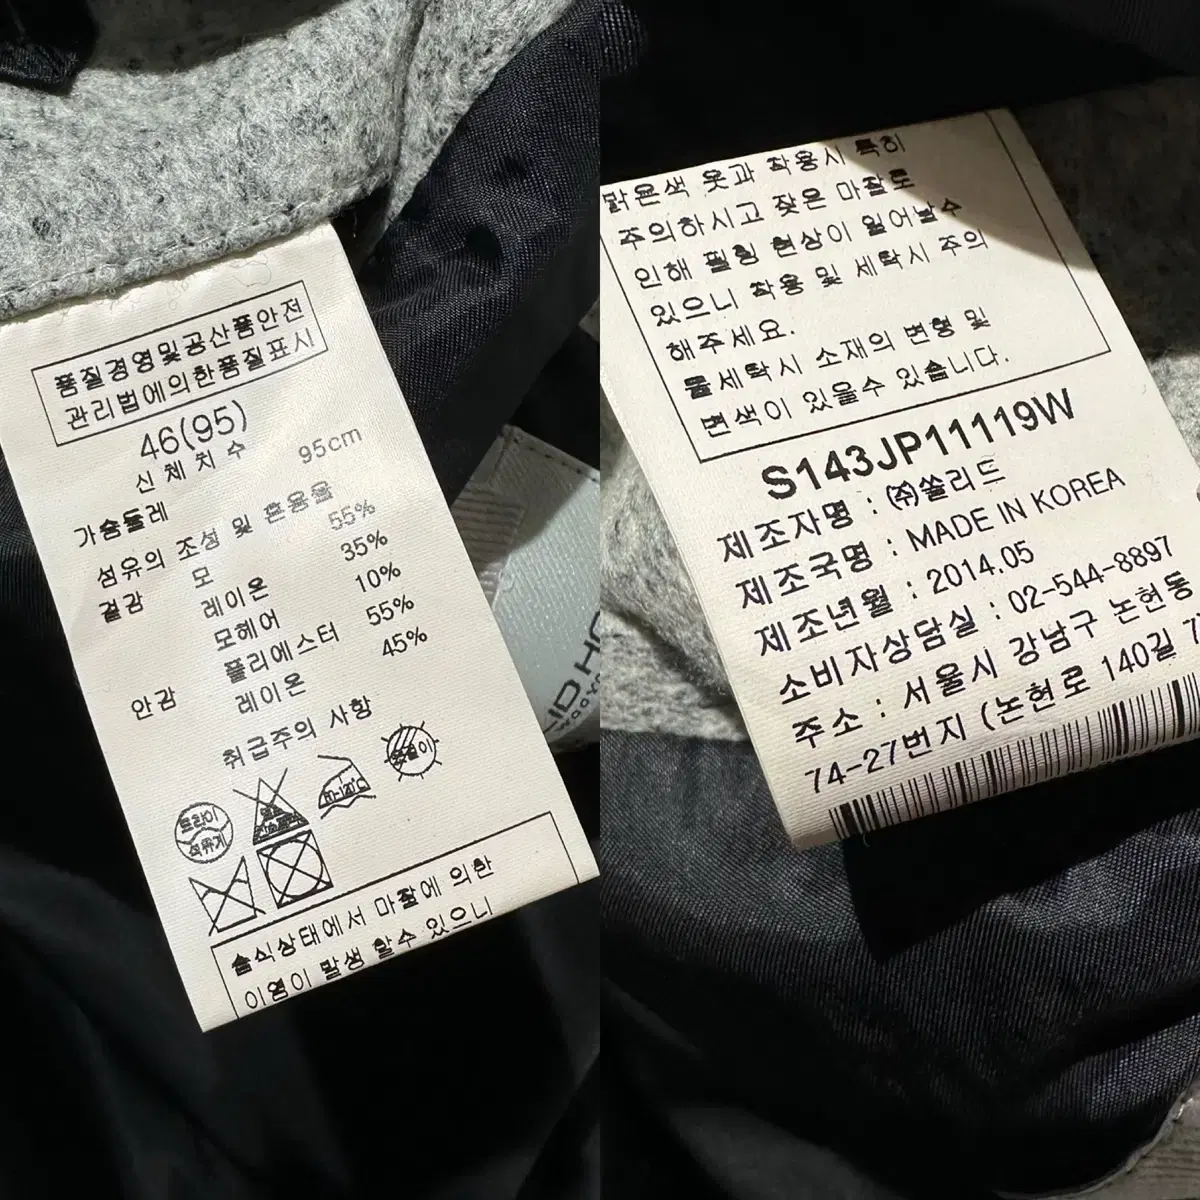 품질경영및공산품안전
관리법에의한품질표시
46(95)
신체치수
가슴둘레 95cm
섬유의 조성 및 혼용율
겉감 모 55%
레이온 35%
모헤어 10%
안감 폴리에스터 55%
레이온 45%
취급주의 사항
드라이
석유계
옷걸이
습식상태에서 마찰에 의한
이염이 발생 할수 있으니
밝은색 옷과 착용시 특히
주의하시고 잦은 마찰로
인해 필링 현상이 일어날수
있으니 착용 및 세탁시 주의
해주세요.
물세탁시 소재의 변형 및
변색이 있을수 있습니다.
S143JP11119W
제조자명 : ㈜쏠리드
제조국명 : MADE IN KOREA
제조년월 : 2014.05
소비자상담실 : 02-544-8897
주소 : 서울시 강남구 논현동
74-27번지 (논현로 140길 7